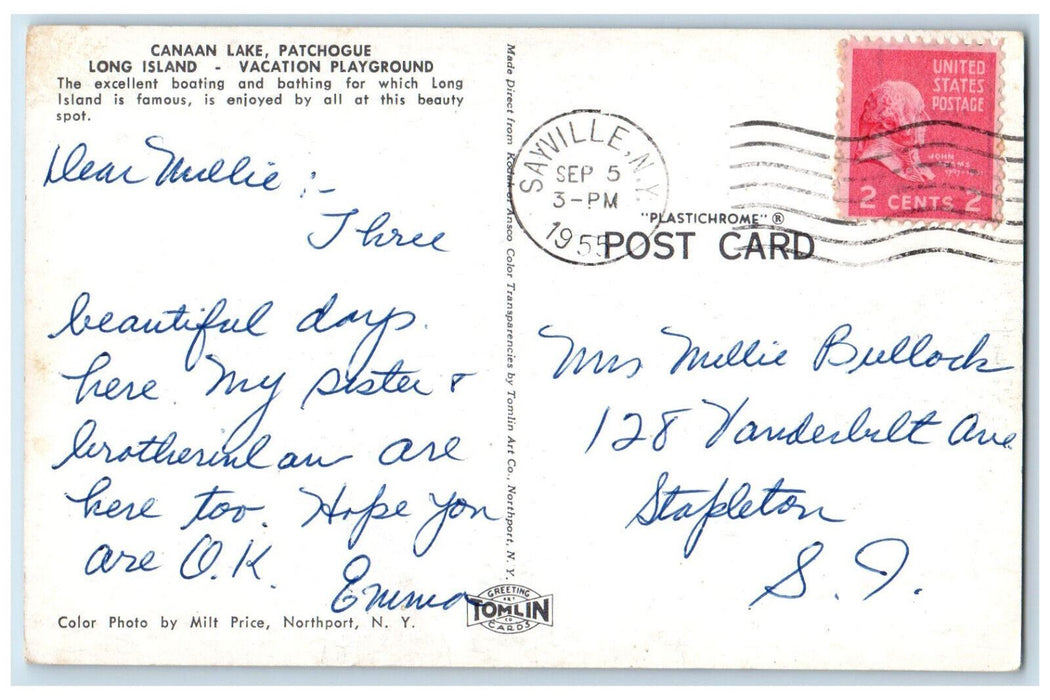 CANAAN LAKE, PATCHOGUE
LONG ISLAND - VACATION PLAYGROUND
The excellent boating and bathing for which Long
Island is famous, is enjoyed by all at this beauty
spot.
Dear Millie :-
Three
beautiful days.
here. My sister &
brotherinlaw are
here too. Hope you
are O.K.
Emma
Color Photo by Milt Price, Northport, N. Y.
Made Direct from Kodak or Ansco Color Transparencies by Tomlin Art Co., Northport, N. Y.
GREETING
ART
TOMLIN
CO
CARDS
SAYVILLE, N.Y.
SEP 5
3-PM
1955
UNITED
STATES
POSTAGE
JOHN
ADAMS
2 CENTS 2
"PLASTICHROME" ®
POST CARD
Mrs Millie Bullock
128 Vanderbilt Ave.
Stapleton
S. I.